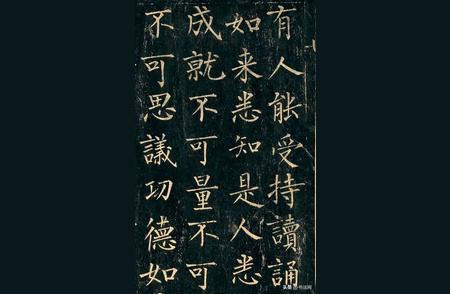 有人能受持讀誦
如来悉知是人悉
成就不可量不可
不可思議功德如
头条@书法网